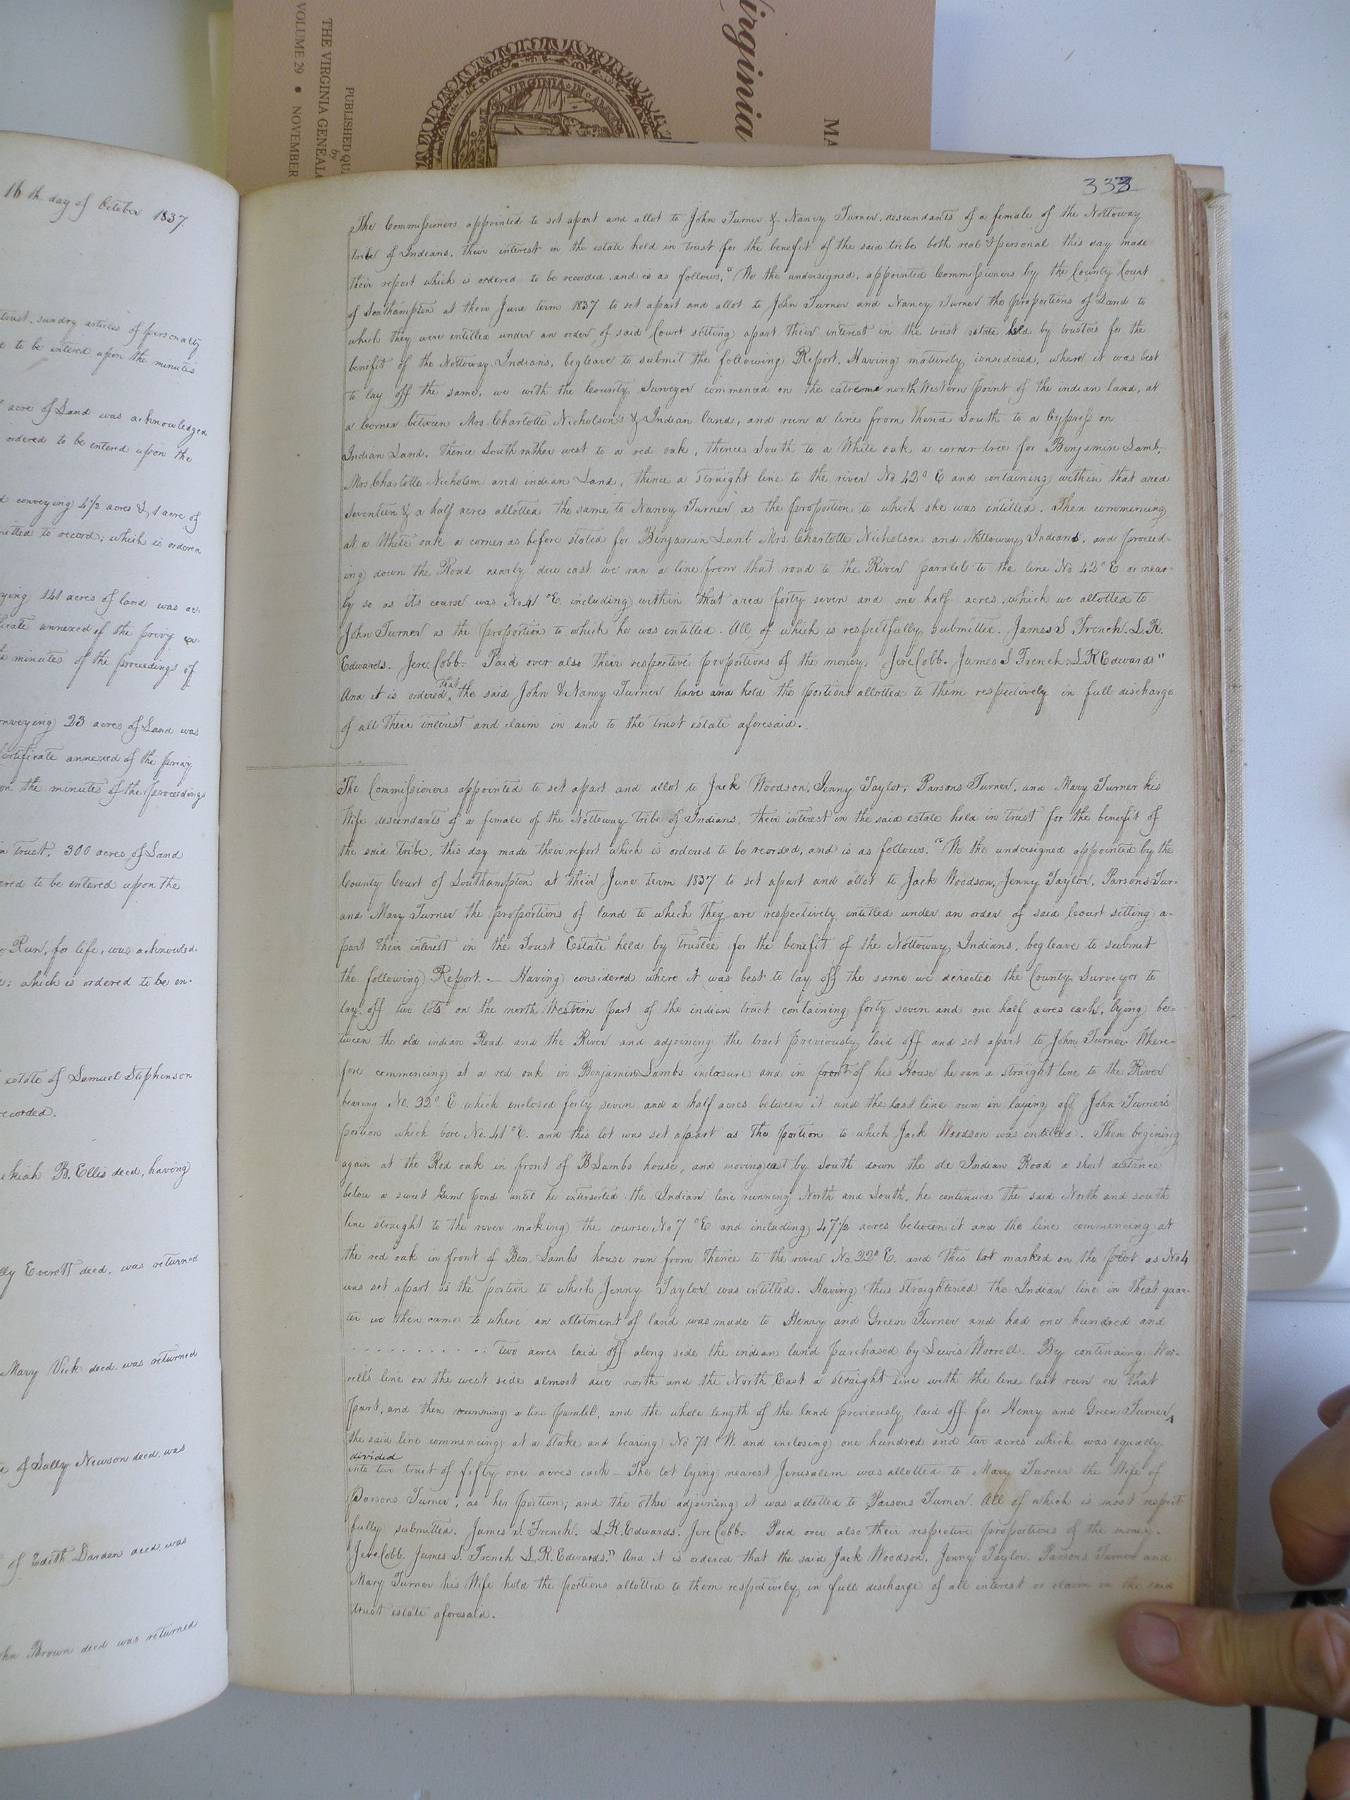 Virginia
MA
PUBLISHED QU
by
THE VIRGINIA GENEAL
VOLUME 29 • NOVEMBER
VIRGINIA IN
16th day of October 1837.
trust, sundry articles of personalty
to be entered upon the minutes
acre of Land was acknowledged
ordered to be entered upon the
conveying 4½ acres & 1 acre of
mitted to record; which is ordered
ying 141 acres of land was ac-
ficate annexed of the privy ex-
minutes of the proceedings of
onveying 23 acres of Land was
Certificate annexed of the privy
on the minutes of the proceedings
in trust, 300 acres of Land
ered to be entered upon the
Run, for life, was acknowled-
which is ordered to be en-
estate of Samuel Stephenson
recorded.
ekiah B. Ellis decd, having
lly Everett decd. was returned
Mary Vick decd. was returned
of Sally Newsom decd. was
of Edith Darden decd. was
hn Brown decd was returned
333
The Commissioners appointed to set apart and allot to John Turner & Nancy Turner descendants of a female of the Nottoway
tribe of Indians, their interest in the estate held in trust for the benefit of the said tribe both real & personal this day made
their report which is ordered to be recorded and is as follows, "We the undersigned, appointed Commissioners by the County Court
of Southampton at their June term 1837 to set apart and allot to John Turner and Nancy Turner the proportions of Land to
which they were entitled under an order of said Court setting apart their interest in the trust estate held by trustees for the
benefit of the Nottoway Indians, beg leave to submit the following Report. Having maturely considered, where it was best
to lay off the same, we with the County Surveyor commenced on the extreme north Western point of the indian land, at
a corner between Mrs. Charlotte Nicholson's & Indian land, and run a line from thence South to a Cypress on
Indian Land, thence South rather west to a red oak, thence South to a White oak a corner tree for Benjamin Lamb,
Mrs. Charlotte Nicholson and indian Land, thence a straight line to the river No 42° E and containing within that area
seventeen & a half acres allotted the same to Nancy Turner as the proportion to which she was entitled. Then commencing
at a White oak a corner as before stated for Benjamin Lamb Mrs. Charlotte Nicholson and Nottoway Indians, and proceed-
ing down the Road nearly due east we ran a line from that road to the River paralel to the line No 42° E or near-
ly so as its course was No 41° E including within that area forty seven and one half acres which we allotted to
John Turner as the proportion to which he was entitled. All of which is respectfully submitted. James S. French. L.R.
Edwards. Jere Cobb. Paid over also their respective proportions of the money, Jere Cobb. James S French L R Edwards"
And it is ordered that the said John & Nancy Turner have and hold the portions allotted to them respectively in full discharge
of all their interest and claim in and to the trust estate aforesaid.
The Commissioners appointed to set apart and allot to Jack Woodson, Jenny Taylor, Parsons Turner, and Mary Turner his
Wife descendants of a female of the Nottoway tribe of Indians, their interest in the said estate held in trust for the benefit of
the said tribe, this day made their report which is ordered to be recorded, and is as follows. "We the undersigned appointed by the
County Court of Southampton at their June term 1837 to set apart and allot to Jack Woodson, Jenny Taylor, Parsons Tur-
and Mary Turner the proportions of land to which they are respectively entitled under an order of said Court setting a-
part their interest in the Trust Estate held by trustee for the benefit of the Nottoway Indians, beg leave to submit
the following Report. — Having considered where it was best to lay off the same we directed the County Surveyor to
lay off two lots on the north Western part of the indian tract containing forty seven and one half acres each, lying be-
tween the old indian Road and the River and adjoining the tract previously laid off and set apart to John Turner Where-
fore commencing at a red oak in Benjamin Lambs inclosure and in front of his House he ran a straight line to the River
bearing No. 32° E which enclosed forty seven and a half acres between it and the last line run in laying off John Turner's
portion which bore No. 41° E. and this lot was set apart as the portion to which Jack Woodson was entitled. Then begining
again at the Red oak in front of B Lambs house, and moving east by South down the old Indian Road a short distance
below a sweet Gum pond until he intersected the Indian line running North and South, he continued the said North and south
line straight to the river making the course No 7° E and including 47½ acres between it and the line commencing at
the red oak in front of Ben Lambs house run from thence to the river No 32° E. and this lot marked on the plot as No 4
was set apart as the portion to which Jenny Taylor was entitled. Having thus straightened the Indian line in that quar-
ter we then came to where an allotment of land was made to Henry and Green Turner and had one hundred and
. . . . . . . . . . . . two acres laid off along side the indian land purchased by Lewis Worrell. By continuing Wor-
rells line on the west side almost due north and the North East a straight line with the line last run on that
part, and then running a line paralel, and the whole length of the land previously laid off for Henry and Green Turner,
the said line commencing at a stake and bearing No 71° W. and inclosing one hundred and two acres which was equally
divided
into two tract of fifty one acres each. The lot lying nearest Jerusalem was allotted to Mary Turner the Wife of
Parsons Turner, as her portion; and the other adjoining it was allotted to Parsons Turner. All of which is most respect-
fully submitted. James S. French. L.R. Edwards. Jere Cobb. Paid over also their respective proportions of the money.
Jere Cobb. James S. French L.R. Edwards." And it is ordered that the said Jack Woodson, Jenny Taylor Parsons Turner and
Mary Turner his Wife hold the portions allotted to them respectively in full discharge of all interest or claim in the said
trust estate aforesaid.